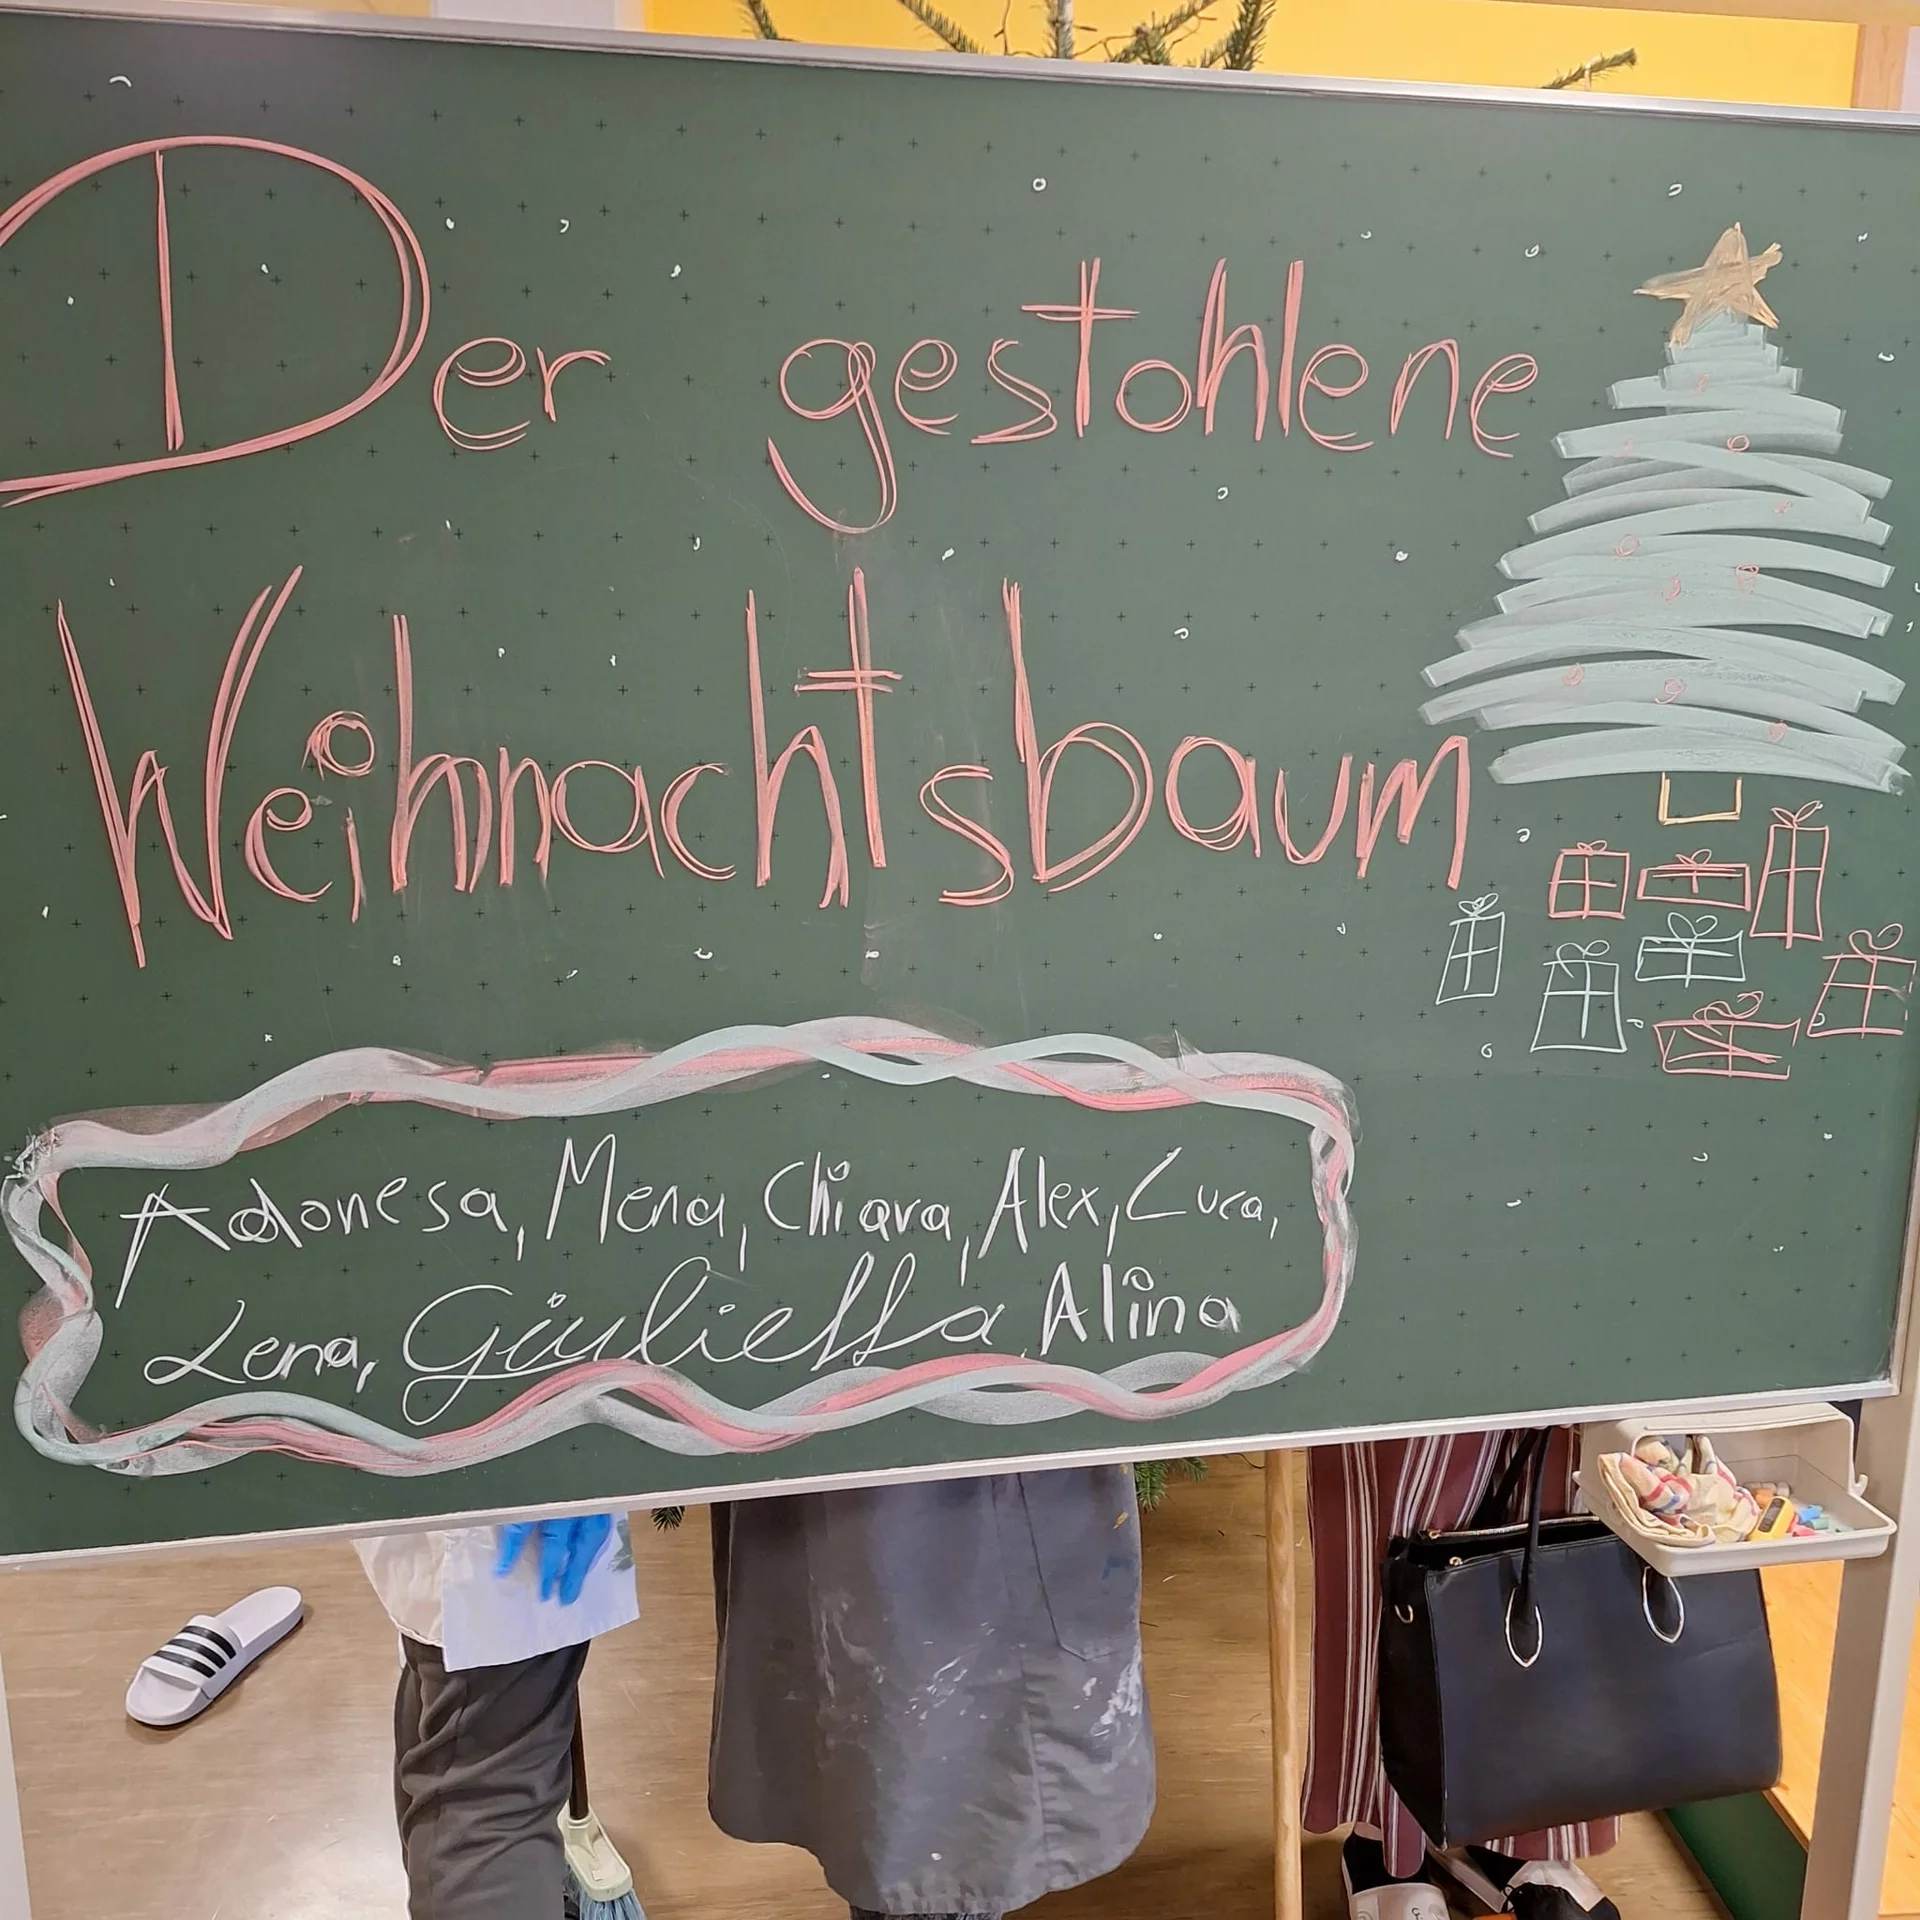 Der gestohlene
Weihnachtsbaum
Adonesa, Mena, Chiara, Alex, Luca,
Lena, Giulietta Alina